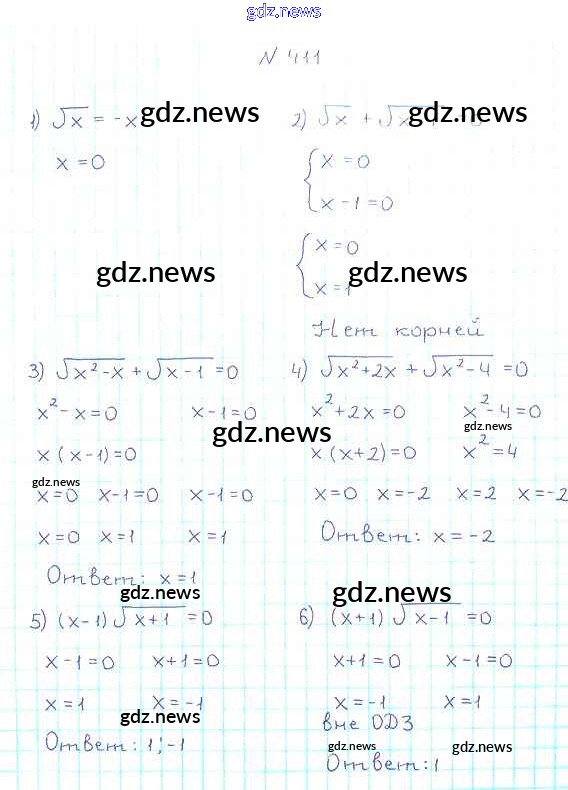 gdz.news
N 411
1) √x = -x gdz.news
x = 0
2) √x + √x gdz.news
{ x = 0
x - 1 = 0
{ x = 0
x = 1
gdz.news gdz.news
Нет корней
3) √x²-x + √x-1 = 0
x² - x = 0 x - 1 = 0
gdz.news
x (x-1) = 0
gdz.news
x = 0 x - 1 = 0 x - 1 = 0
x = 0 x = 1 x = 1
Ответ: x = 1
gdz.news
4) √x²+2x + √x²-4 = 0
x² + 2x = 0 x² - 4 = 0
gdz.news
x (x+2) = 0 x² = 4
x = 0 x = -2 x = 2 x = -2
Ответ: x = -2
gdz.news
5) (x-1) √x+1 = 0
x - 1 = 0 x + 1 = 0
x = 1 x = -1
gdz.news
Ответ: 1; -1
6) (x+1) √x-1 = 0
x + 1 = 0 x - 1 = 0
x = -1 x = 1
вне ОДЗ
gdz.news gdz.news
Ответ: 1